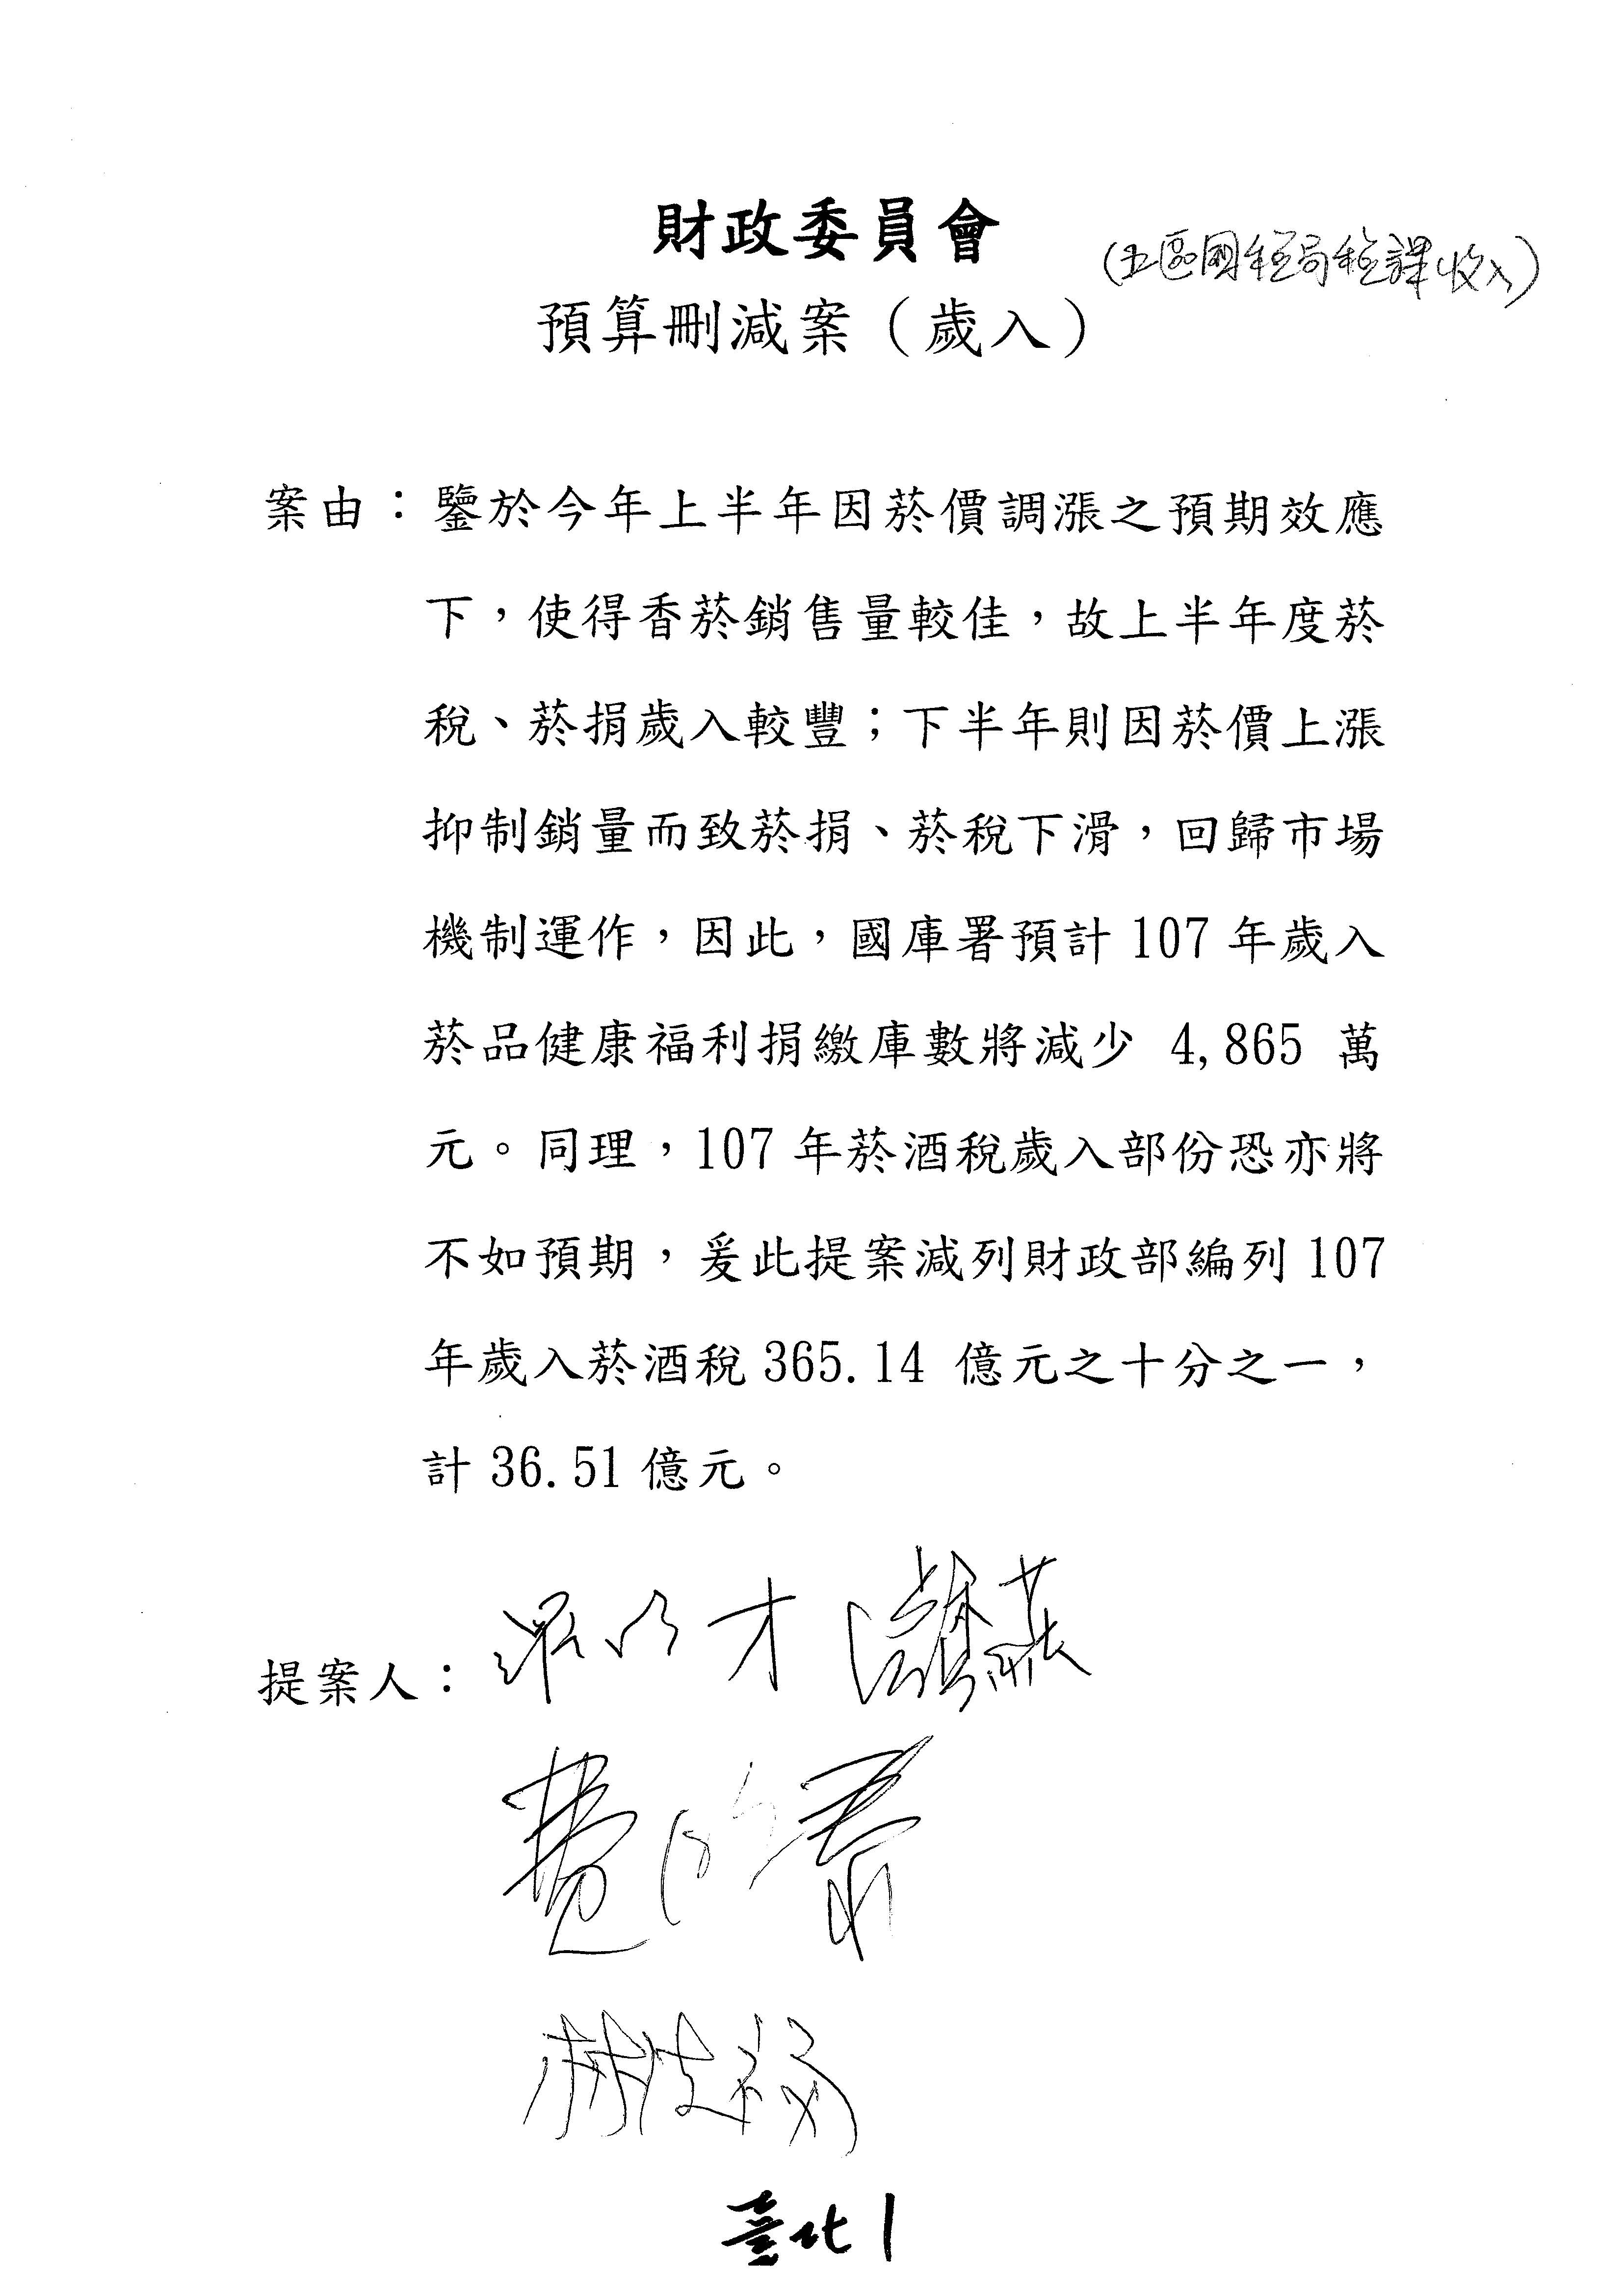 財政委員會
(五區國稅局稅課收入)
預算刪減案（歲入）
案由：鑒於今年上半年因菸價調漲之預期效應
下，使得香菸銷售量較佳，故上半年度菸
稅、菸捐歲入較豐；下半年則因菸價上漲
抑制銷量而致菸捐、菸稅下滑，回歸市場
機制運作，因此，國庫署預計 107 年歲入
菸品健康福利捐繳庫數將減少 4,865 萬
元。同理，107 年菸酒稅歲入部份恐亦將
不如預期，爰此提案減列財政部編列 107
年歲入菸酒稅 365.14 億元之十分之一，
計 36.51 億元。
提案人：
臺北1